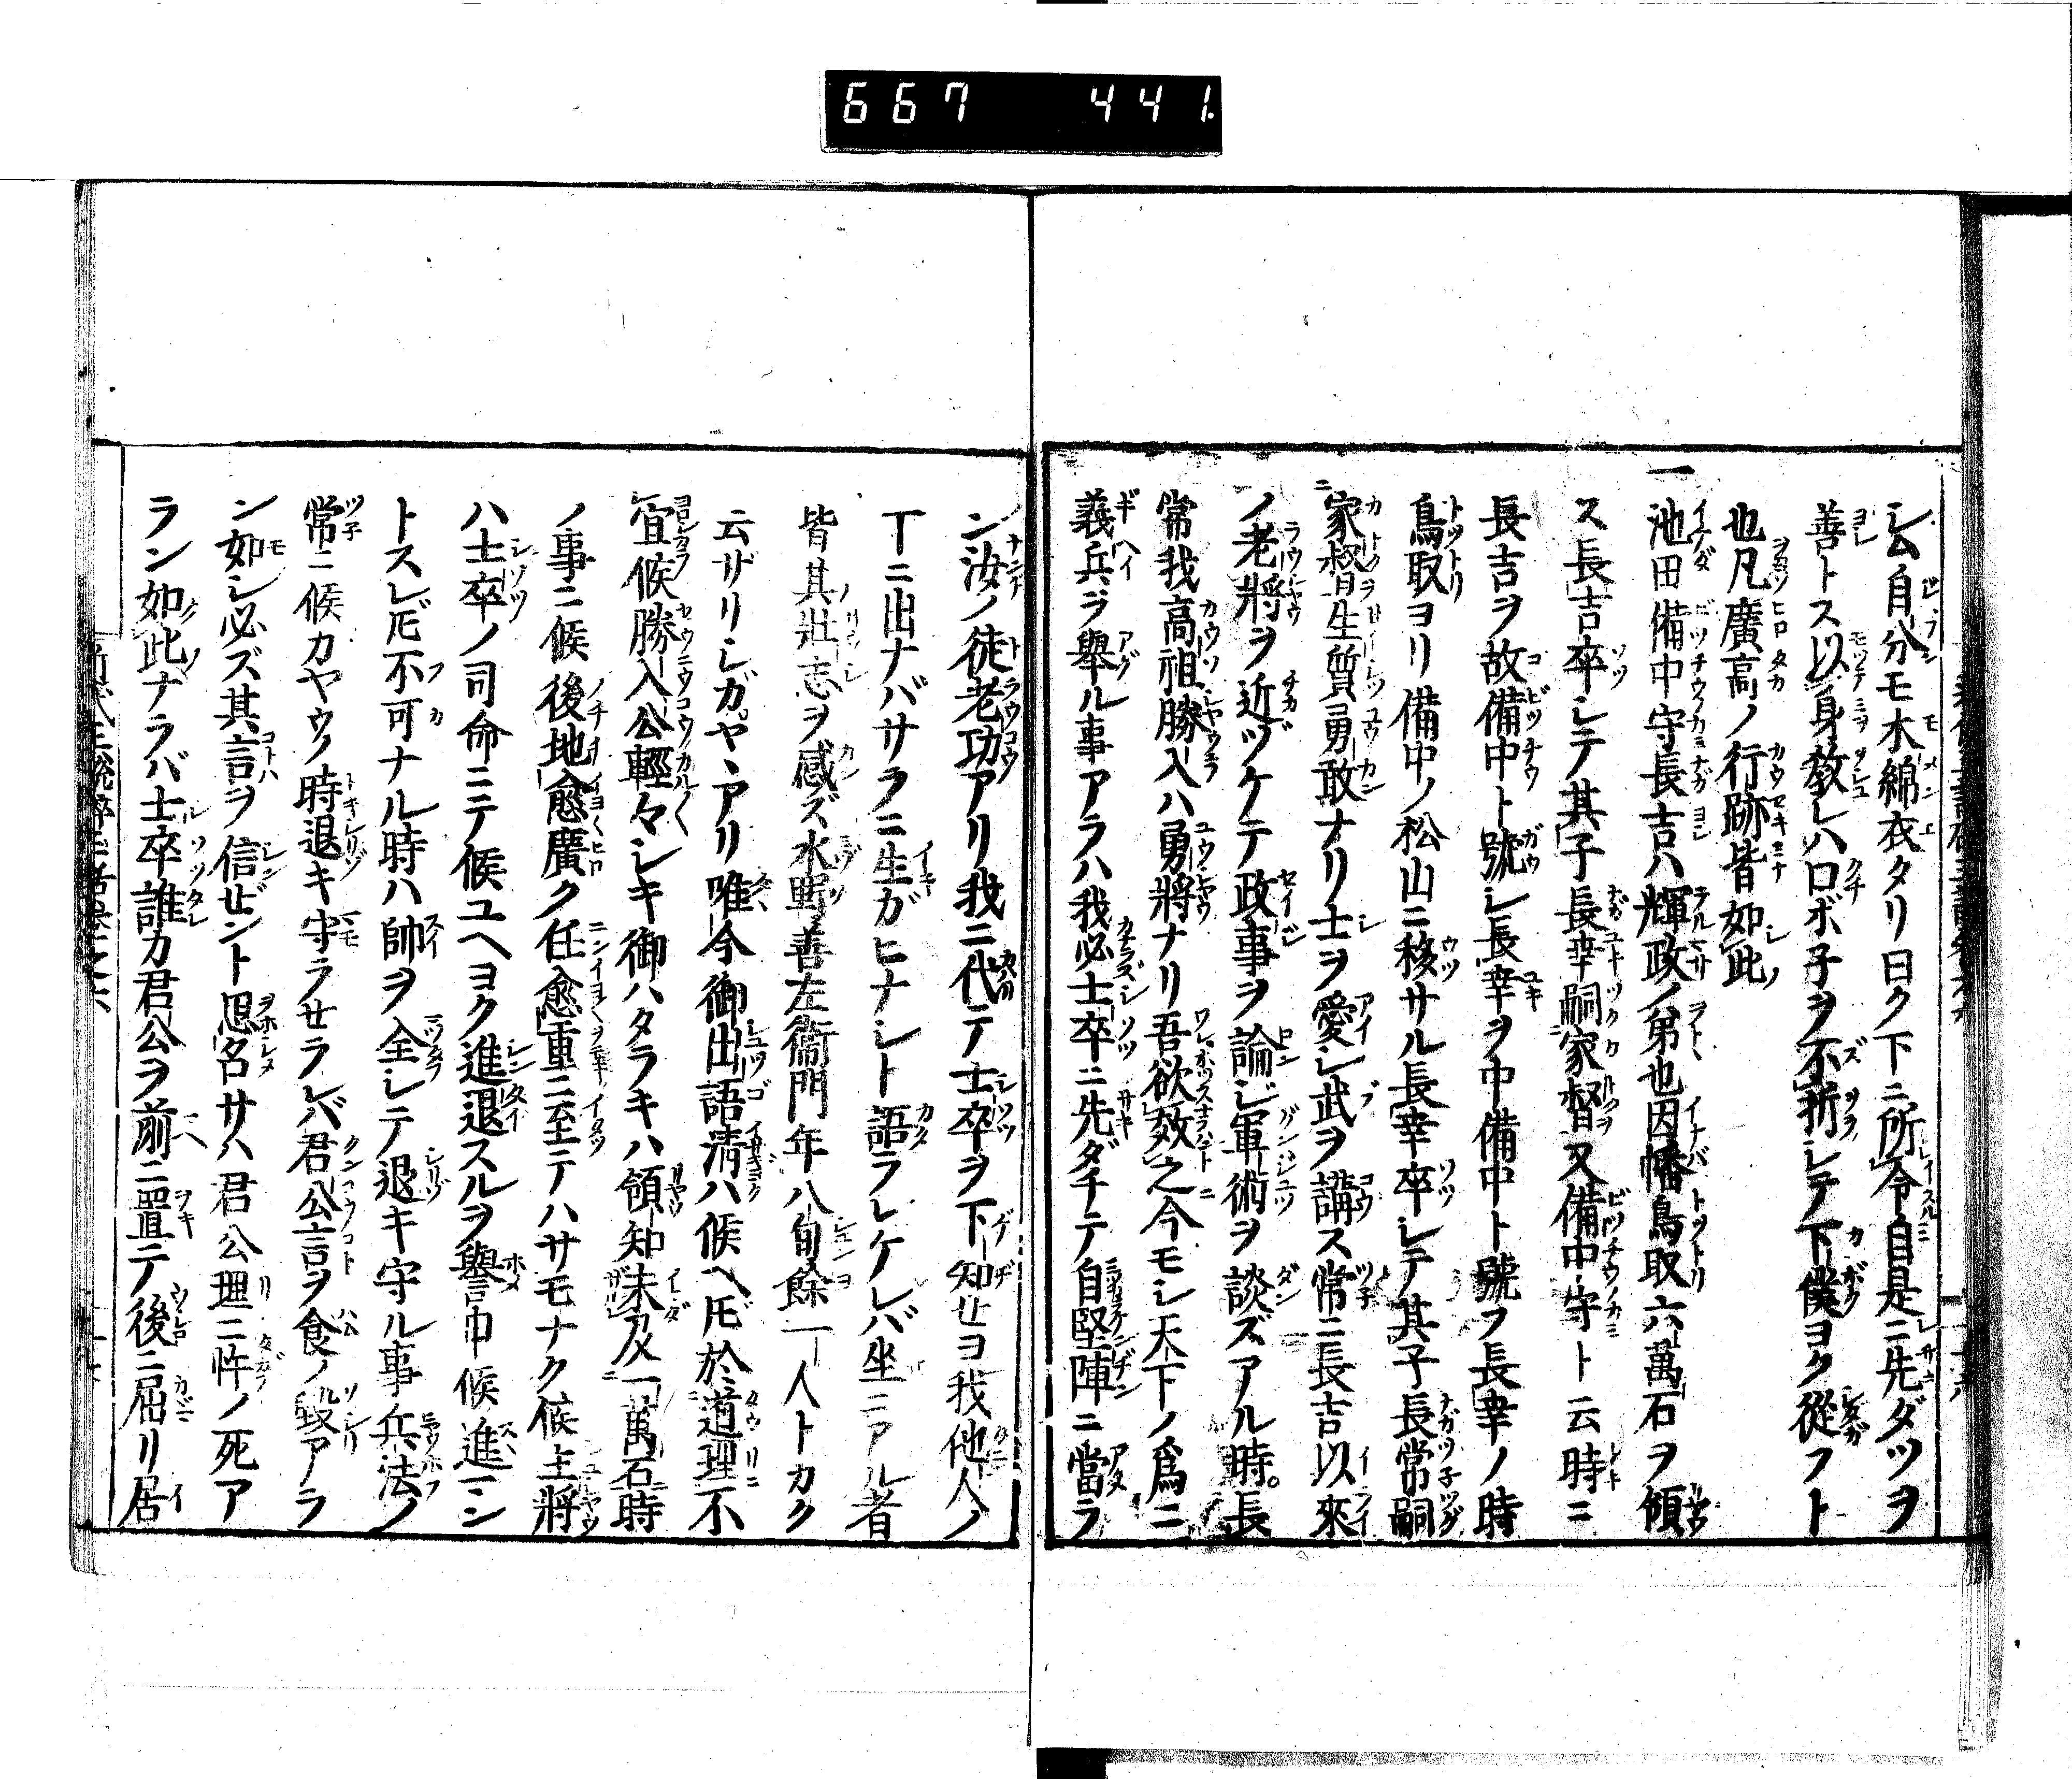 667 441
シム自分モ木綿衣タリ曰ク下ニ所令自是ニ先ダツヲ
善トス以身教レハ口ボ子ヲ不折シテ下僕ヨク從フト
也凡廣高ノ行跡皆如此
一池田備中守長吉ハ輝政ノ弟也因幡鳥取六萬石ヲ領
ス長吉卒シテ其子長幸嗣家督又備中守ト云時ニ
長吉ヲ故備中ト號シ長幸ヲ中備中ト號フ長幸ノ時
鳥取ヨリ備中ノ松山ニ移サル長幸卒シテ其子長常嗣
家督生質勇敢ナリ士ヲ愛シ武ヲ講ス常ニ長吉以來
ノ老將ヲ近ヅケテ政事ヲ論シ軍術ヲ談ズアル時長
常我高祖勝入ハ勇將ナリ吾欲效之今モシ天下ノ爲ニ
義兵ヲ舉ル事アラハ我必士卒ニ先ダチテ自堅陣ニ當ラ
ン汝ノ徒老功アリ我ニ代テ士卒ヲ下知せヨ我他人ノ
丁ニ出ナバサラニ生ガヒナシト語ラレケレバ坐ニアル者
皆其壯志ヲ感ズ水野善左衞門年八旬餘一人トカク
云ザリシガヤヽアリ唯今御出語淸ハ候ヘ𪜈於道理不
宜候勝入公輕々シキ御ハタラキハ領知未及一萬石時
ノ事ニ候後地愈廣ク任愈重ニ至テハサモナク候主將
ハ士卒ノ司命ニテ候ユヘヨク進退スルヲ譽申候進マン
トスレ𪜈不可ナル時ハ帥ヲ全シテ退キ守ル事兵法ノ
常ニ候カヤウノ時退キ守ラせラレバ君公言ヲ食ノ毀アラ
ン如シ必ズ其言ヲ信ぜント思名サハ君公理ニ忤ノ死ア
ラン如此ナラバ士卒誰カ君公ヲ前ニ置テ後ニ屈リ居